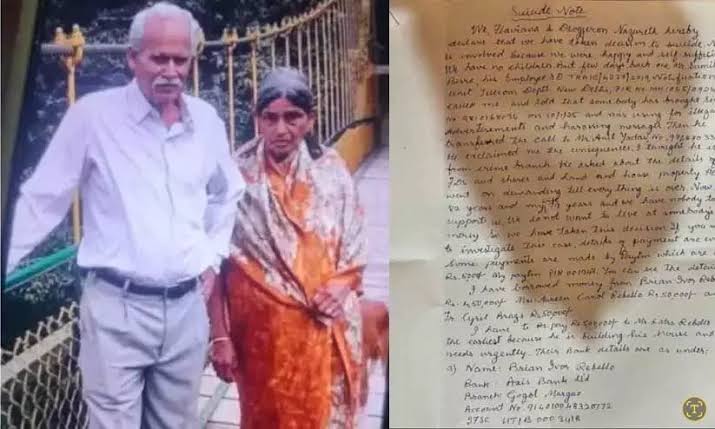 Suicide Note
We, Flaviana & Diogjeron Nazareth hereby
declare that we have taken decision to suicide. No
is involved because we were happy and self suffici
We have no children. But few days back one Mr. Sumit
Birra, his Employee ID Notification
sent Telecom Deptt New Delhi, FIR No
called me, and told that somebody has brought
No on and was using for illegal
Advertisements and harassing message. Then he
transferred the call to Mr. Anil Yadav No.
He explained me the consequences. I thought he is
from crime branch. He asked about the details of
FDs and shares and land and house property. He
went on demanding till every thing is over. Now
82 years and my 79 years and we have nobody to
support us. We do not want to live at somebody's
mercy. So we have taken this decision. If you wa
to investigate this case, details of payment are
Some payments are made by Paytm which are
My paytm You can see the details
I have borrowed money from Brian Ivor Rebe
Rs. 4,50,000/- Mrs. Careen Carol Rebello Rs. 50,000/- a
Fr. Cyril Rs. 50000/-
I have to Re pay Rs. 500,000/- to Mr & Mrs Rebello
the earliest because he is building his House and
needs urgently. Their Bank details are as under;
a) Name: Brian Ivor Rebello
Bank: Axis Bank Ltd
Branch: Gogol Margao
Account No. 914010048320772
IFSC UTIB 000 3418
T